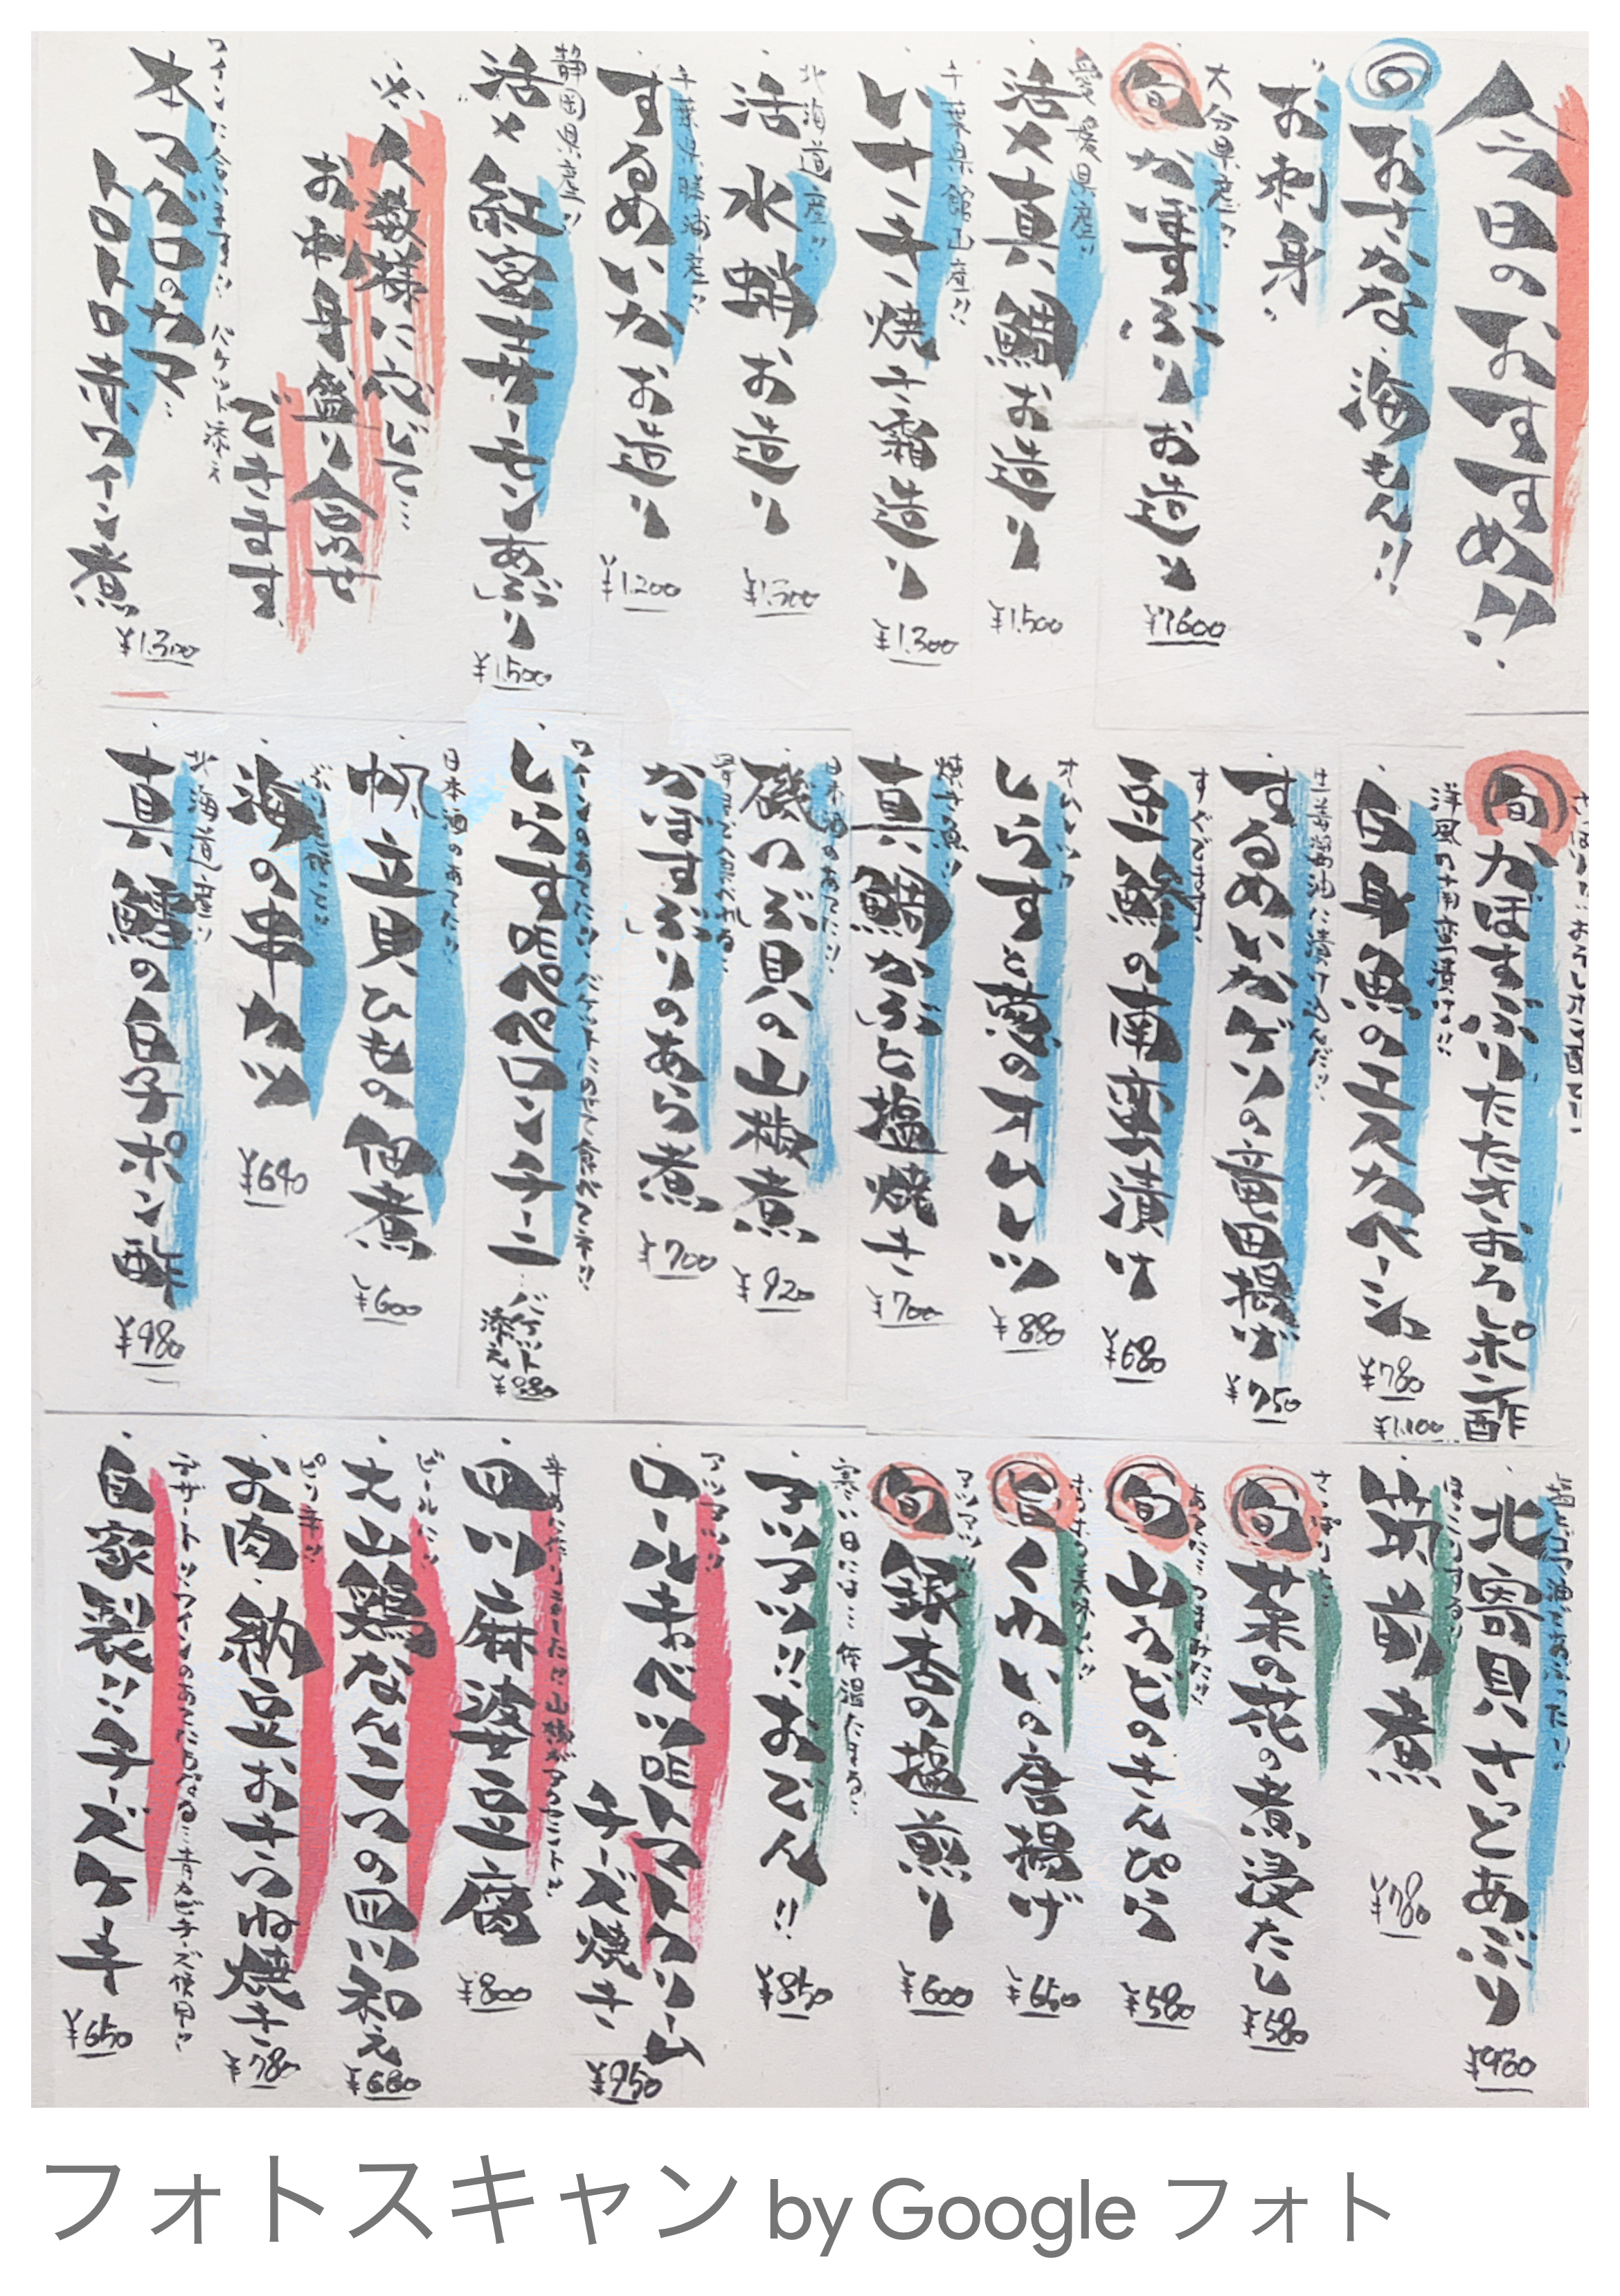 今日のおすすめ!!
旬おさかな、海もん!!
お刺身
大分県産!!
旬かぼすぶりお造り
¥1600
愛媛県産!!
活〆真鯛お造り
¥1,500
千葉県館山産!!
いさき焼き霜造り
¥1,300
北海道産!!
活水蛸お造り
千葉県勝浦産!!
するめいかお造り
¥1,200
静岡県産!!
活〆紅富士サーモンあぶり
¥1,500
※人数様に応じて…
お刺身盛り合わせ
できます
ワインに合います!! バケット添え
本マグロのカマ
トロトロ赤ワイン煮
¥1,300
さっぱりに!おろしポン酢で!!
旬かぼすぶりたたきおろしポン酢
¥1,100
洋風の南蛮漬け!!
白身魚のエスカベーシュ
¥780
生姜醤油に漬け込んだ!!
するめいかげその竜田揚げ
¥750
すぐでます!
豆鯵の南蛮漬け
¥680
しらすと葱のオムレツ
¥880
焼き魚!!
真鯛かぶと塩焼き
¥700
日本酒のあてに!!
磯つぶ貝の山椒煮
¥920
かぼすぶりのあら煮
¥700
ワインのあてに!! バケットにのせて食べてネ!!
しらすDEペペロンチーニ
バケット添え
¥880
日本酒のあてに!!
帆立貝ひもの佃煮
¥600
海の串カツ
¥690
北海道産!!
真鱈の白子ポン酢
¥980
北寄貝さっとあぶり
ほっこりする!!
筑前煮
¥780
さっぱりに!!
旬菜の花の煮浸たし
¥580
旬山うどのきんぴら
¥580
旬くわいの唐揚げ
¥650
アツアツ!!
旬銀杏の塩煎り
¥600
寒い日には… 体温たまる!!
アツアツ!!おでん!!
¥850
アツアツ!!
ロールキャベツDEトマトクリーム
チーズ焼き
¥950
四川麻婆豆腐
¥800
ビールに!!
大山鶏なんこつの四川和え
¥680
ピリ辛!!
お肉・納豆おきつね焼き
¥780
デザートに!ワインのあてにもなる…青カビチーズ使用!!
自家製!!チーズケーキ
¥650
フォトスキャン by Google フォト